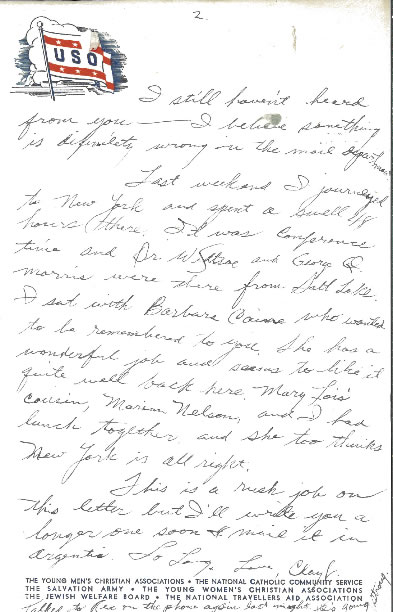 2.
USO
I still haven't heard
from you — I believe something
is definitely wrong on the mail
Last weekend I journeyed
to New York and spent a swell 48
hours there. It was Conference
time and Dr. and George Q.
Morris were there from Salt Lake.
I sat with Barbara who wanted
to be remembered to you. She has a
wonderful job and seems to like it
quite well back here. Mary Lois'
cousin, Marian Nelson, and I had
lunch together and she too thinks
New York is all right.
This is a rush job on
this letter but I'll write you a
longer one soon & mail it in
Argentia. So Long, Love,
THE YOUNG MEN'S CHRISTIAN ASSOCIATIONS • THE NATIONAL CATHOLIC COMMUNITY SERVICE
THE SALVATION ARMY • THE YOUNG WOMEN'S CHRISTIAN ASSOCIATIONS
THE JEWISH WELFARE BOARD • THE NATIONAL TRAVELERS AID ASSOCIATION
Talked to on the phone again last night. He's going